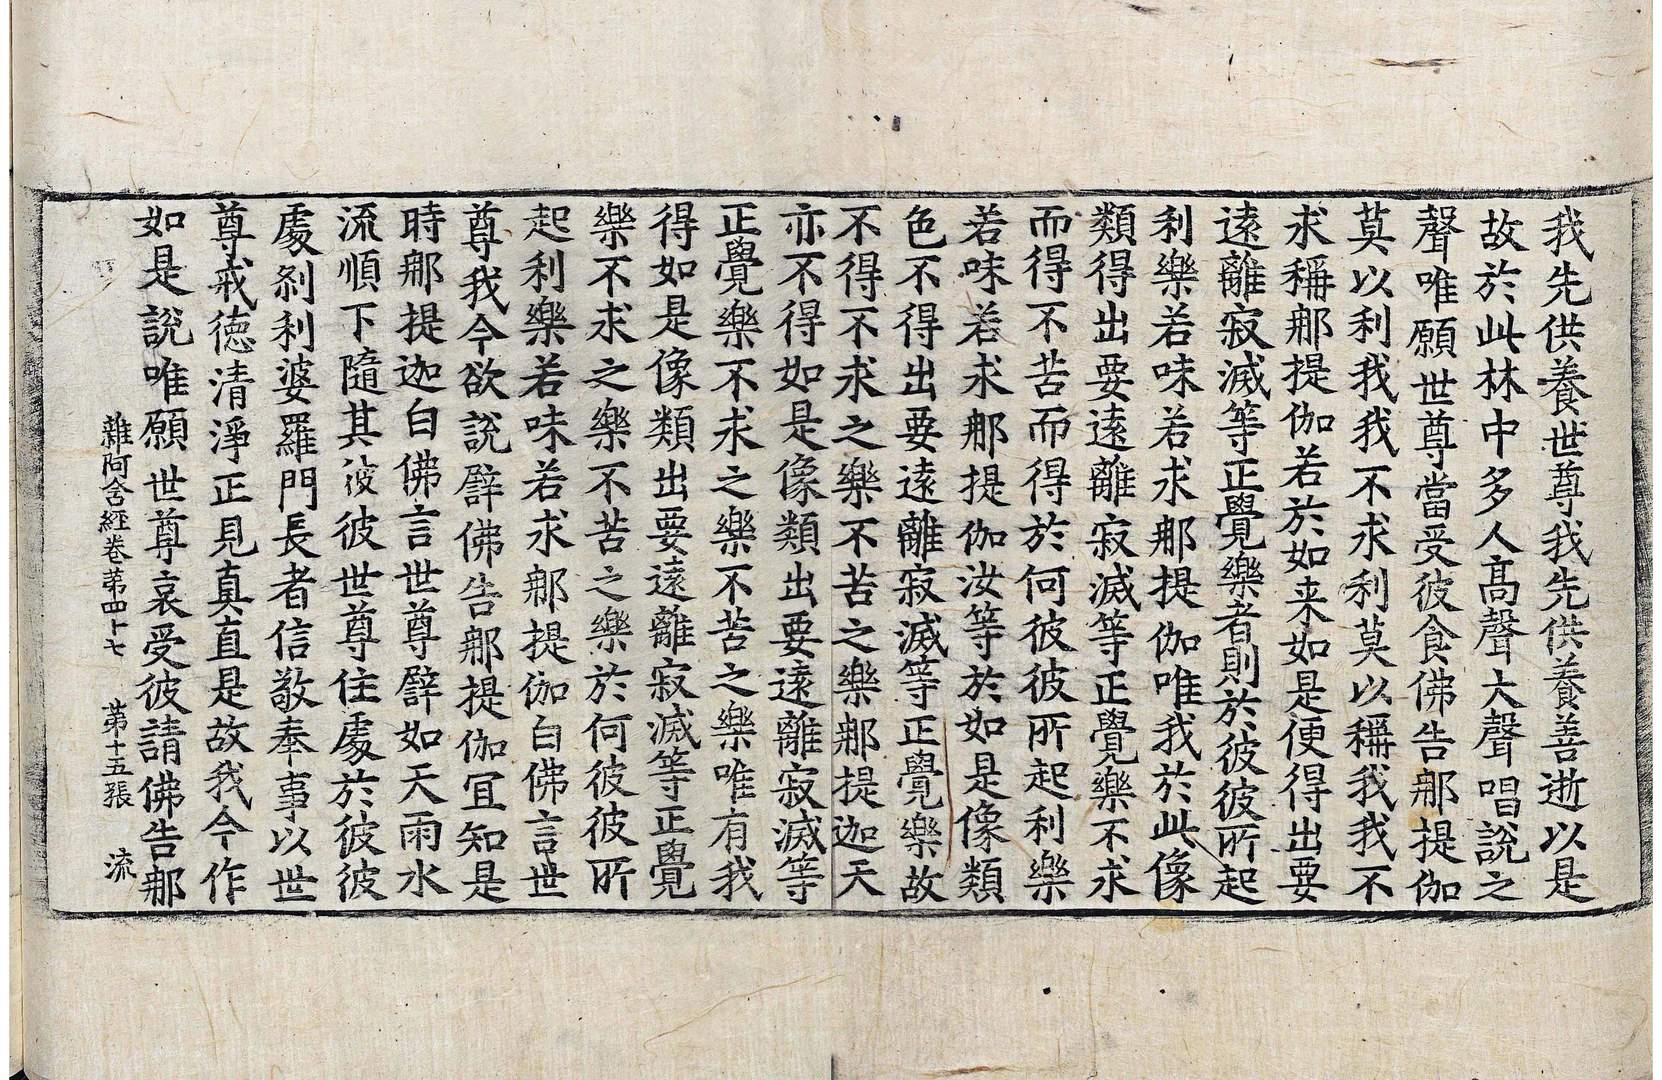 我先供養世尊我先供養善逝以是
故於此林中多人高聲大聲唱說之
聲唯願世尊當受彼食佛告那提伽
莫以利我我不求利莫以稱我我不
求稱那提伽若於如来如是便得出要
遠離寂滅等正覺樂者則於彼彼所起
利樂若味若求那提伽唯我於此像
類得出要遠離寂滅等正覺樂不求
而得不苦而得於何彼彼所起利樂
若味若求那提伽汝等於如是像類
色不得出要遠離寂滅等正覺樂故
不得不求之樂不苦之樂那提迦天
亦不得如是像類出要遠離寂滅等
正覺樂不求之樂不苦之樂唯有我
得如是像類出要遠離寂滅等正覺
樂不求之樂不苦之樂於何彼彼所
起利樂若味若求那提伽白佛言世
尊我今欲說譬佛告那提伽宜知是
時那提迦白佛言世尊譬如天雨水
流順下隨其彼彼世尊住處於彼彼
處刹利婆羅門長者信敬奉事以世
尊戒德清淨正見真直是故我今作
如是說唯願世尊哀受彼請佛告那
雜阿含經卷第四十七 第十五張 流